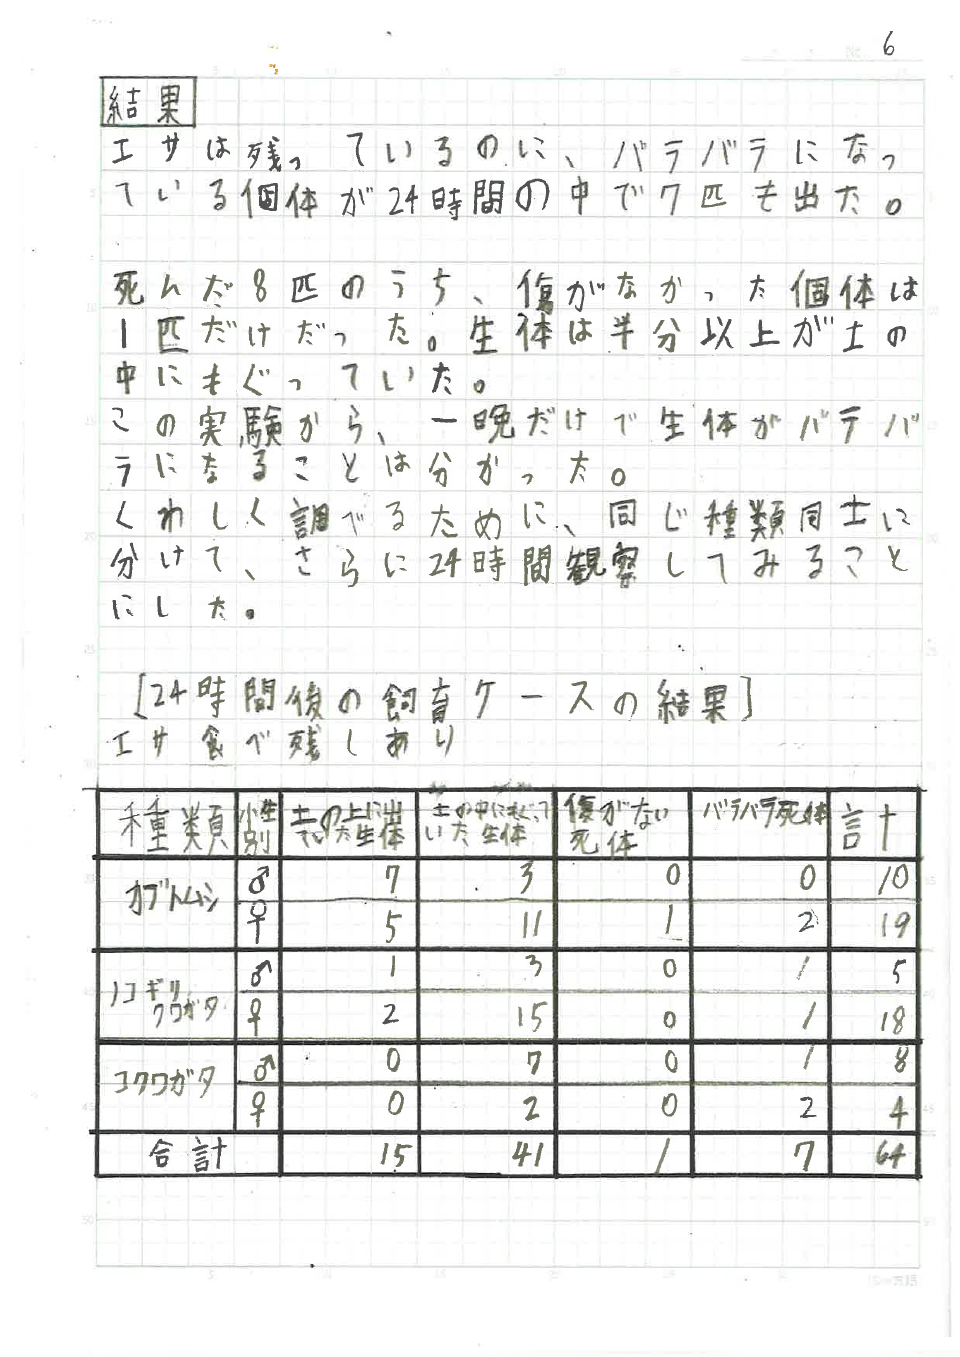 6
結果
エサは残っているのに、バラバラになっ
ている個体が24時間の中で7匹も出た。
死んだ8匹のうち、傷がなかった個体は
1匹だけだった。生体は半分以上が土の
中にもぐっていた。
この実験から、一晩だけで生体がバラバ
ラになることは分かった。
くわしく調べるために、同じ種類同士に
分けて、さらに24時間観察してみること
にした。
[24時間後の飼育ケースの結果]
エサ食べ残しあり
種類 性別 土の上に出ていた生体 土の中にもぐっていた生体 傷がない死体 バラバラ死体 計
カブトムシ ♂ 7 3 0 0 10
♀ 5 11 1 2 19
ノコギリクワガタ ♂ 1 3 0 1 5
♀ 2 15 0 1 18
コクワガタ ♂ 0 7 0 1 8
♀ 0 2 0 2 4
合計 15 41 1 7 64